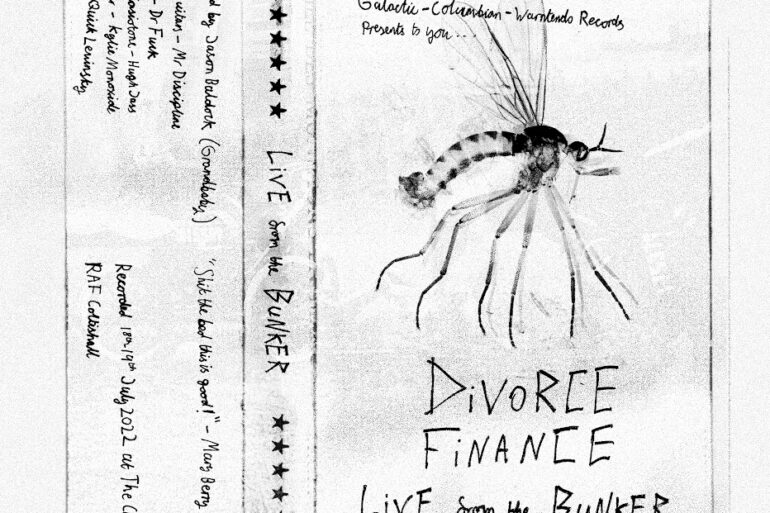 Galactic-Columbian-Warntendo Records
Presents to you...
DiVORCE
FiNANCE
LiVE from the BUNKER
★★★★★ LiVE from the BUNKER ★★★★
d by Jason Baldock (Grandbaby)
- Mr Discipline
- Dr Fuck
- Hugh Jass
- Kylie Monoxide
Quick Leninsky
"Shit the bed this is good!" - Mary Berry
Recorded 18th/19th July 2022 at The
RAF Coltishall